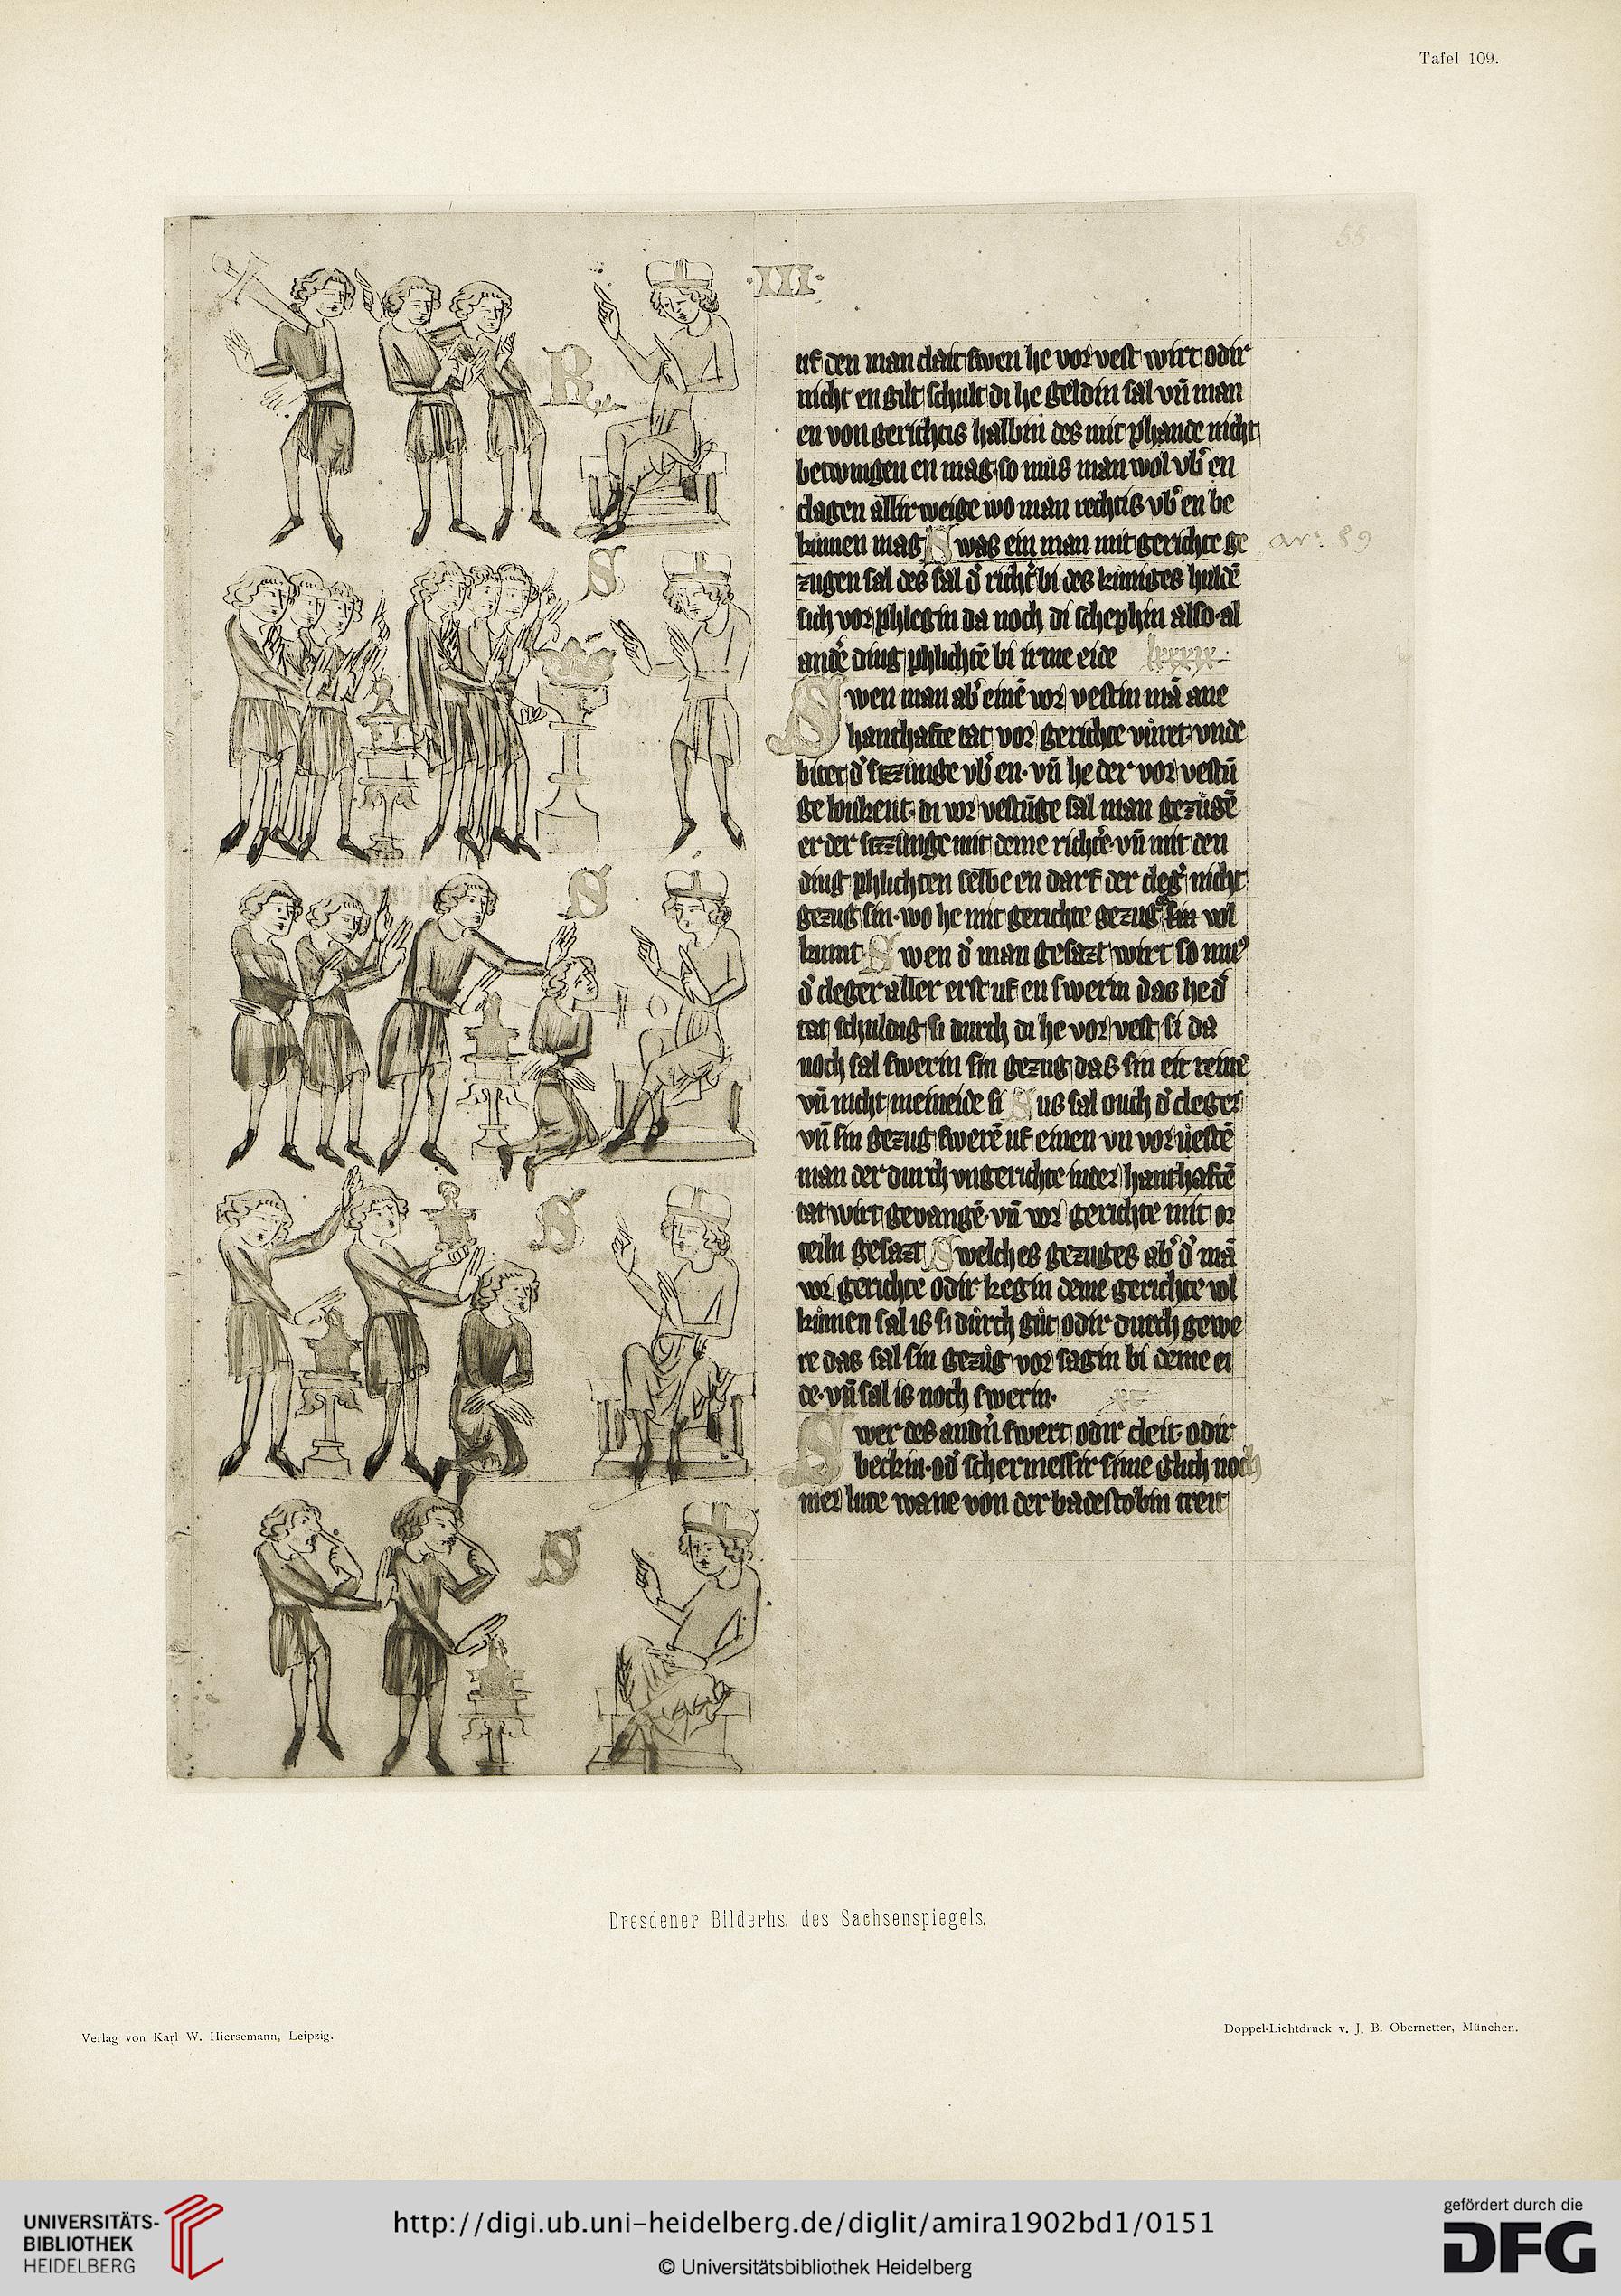 Tafel 109.
55
·III·
R
uf den man clait swen he vor vest wirt odir
nicht en gilt schult di he geldin sal vn̄ man
en von gerichtis halbin des mit phande nicht
betwingen en mag so mus man wol vb᾽ en
clagen allir weige wo man rechtis vb᾽ en be
kumen mag S was ein man mit gerichte ge
ar. 89
zugen sal des sal d᾽ richt᾽ bi des kuniges huldē
sich vor phlegin da noch di schephin also al
andē ding phlichtē bi irme eide lxxxix.
S
S wen man ab᾽ einē vor vestin mā ane
hanthafte tat vor gerichte vuret vnde
bitet d᾽ vb᾽ en vn̄ he der vor vestū
ge loukent di vor vestūge sal man gezugē
er der mit deme richt᾽e vn̄ mit den
ding phlichten selbe en darf der cleg᾽ nicht
gezug sin wo he mit gerichte gezug sin vol
kumt S wen d᾽ man gesazt wirt so mus
S
d᾽ cleger aller erst uf en swerin das he d᾽
tat schuldig si durch di he vor vest si da
noch sal swerin sin gezug das sin eit reine
vn̄ nicht meineide si S us sal ouch d᾽ cleger
vn̄ sin gezug swerē uf einen vn vor uestē
man der durch vngerichte in der hanthaftē
tat wirt gevangē vn̄ vor gerichte mit or
teiln gesazt S welches gezuges ab᾽ d᾽ mā
S
vor gerichte odir kegin deme gerichte vol
kumen sal is si durch gut odir durch gewe
re das sal sin gezug vor sagin bi deme ei
de vn̄ sal is noch swerin. xc
S wer des andn᾽ swert odir cleit odir
beckin od᾽ schermessir sime glich noch
mer lute wane von der badestobin treit
S
Dresdener Bilderhs. des Sachsenspiegels.
Verlag von Karl W. Hiersemann, Leipzig.
Doppel-Lichtdruck v. J. B. Obernetter, München.
UNIVERSITÄTS-
BIBLIOTHEK
HEIDELBERG
http://digi.ub.uni-heidelberg.de/diglit/amira1902bd1/0151
© Universitätsbibliothek Heidelberg
gefördert durch die
DFG